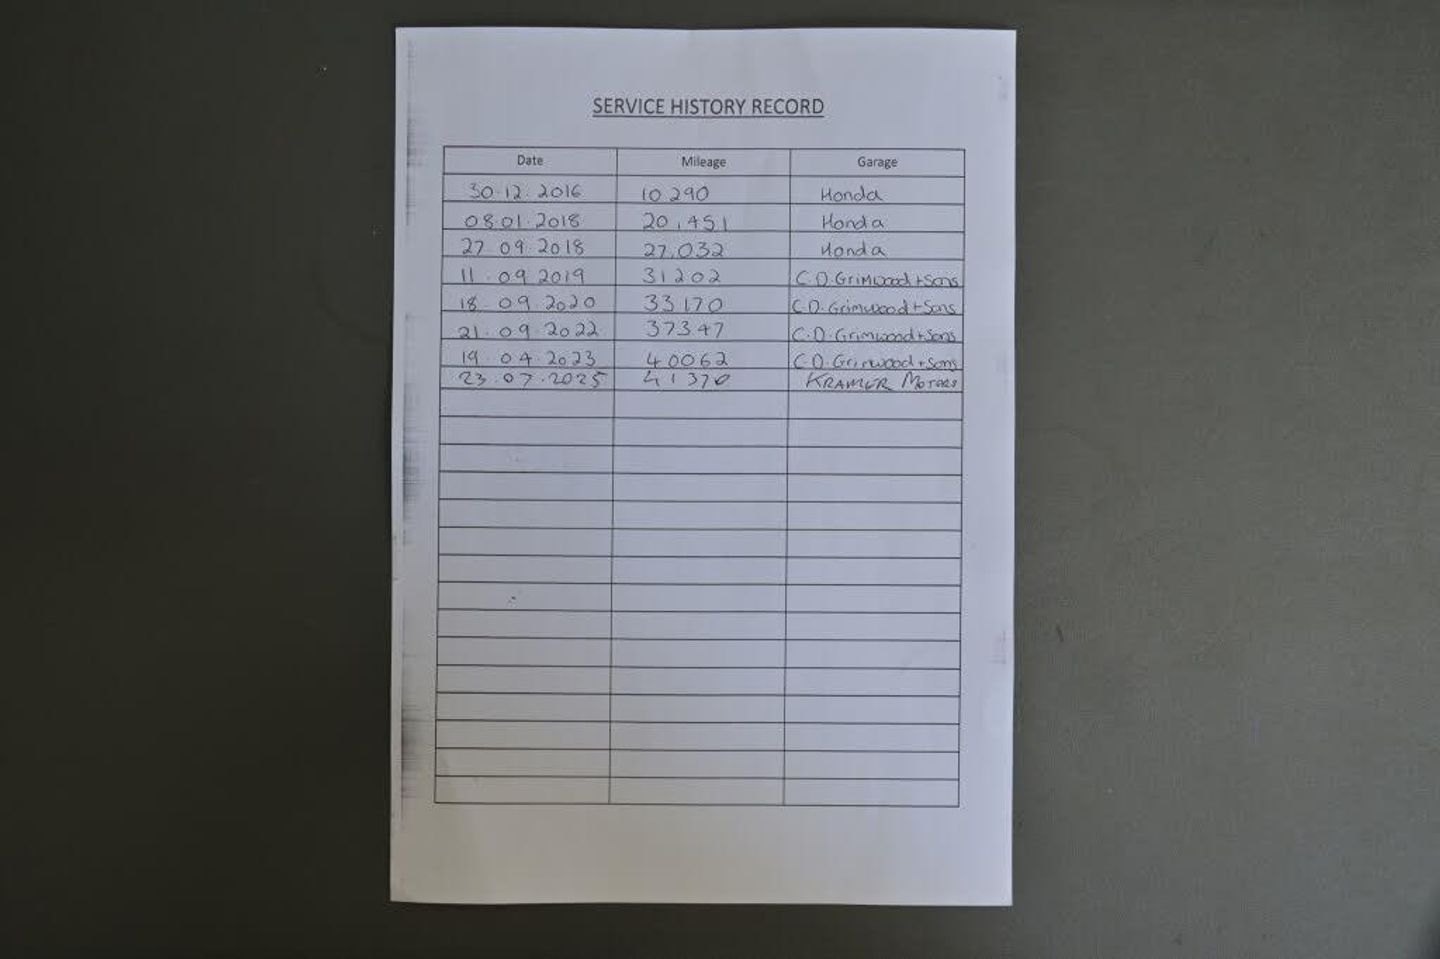 SERVICE HISTORY RECORD
Date Mileage Garage
30.12.2016 10290 Honda
08.01.2018 20,451 Honda
27.09.2018 27,032 Honda
11.09.2019 31202 C.D.Grimwood+Sons
18.09.2020 33170 C.D.Grimwood+Sons
21.09.2022 37347 C.D.Grimwood+Sons
19.04.2023 40062 C.D.Grimwood+Sons
23.07.2025 41370 KRAMER MOTORS